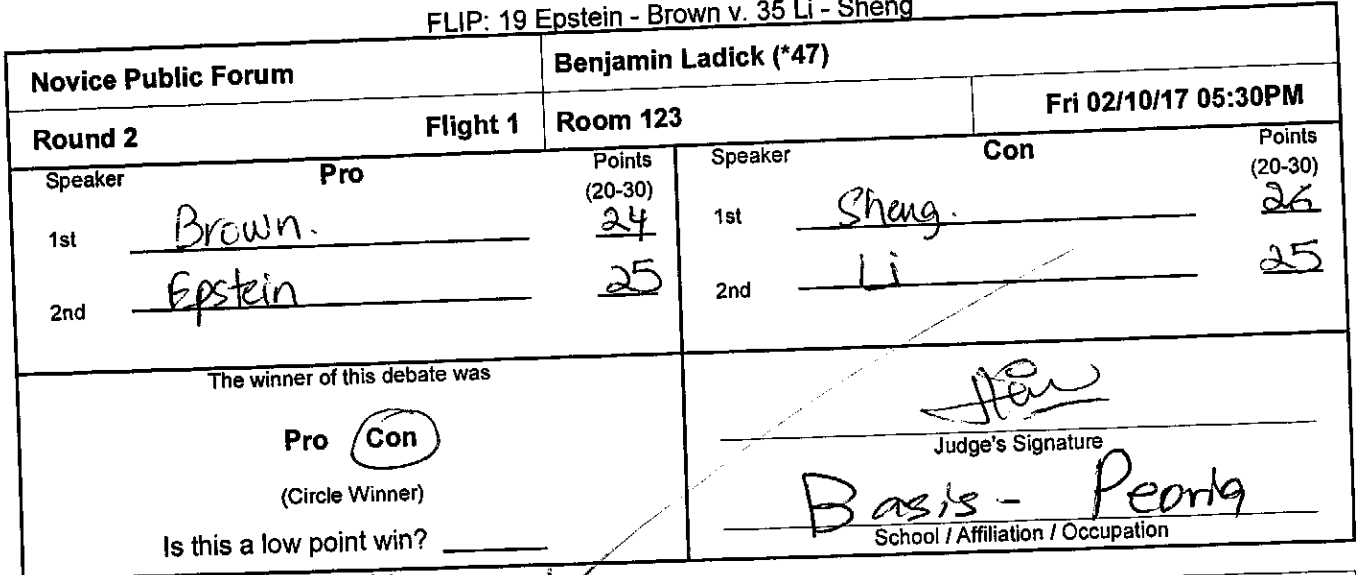 FLIP: 19 Epstein - Brown v. 35 Li - Sheng
Novice Public Forum
Benjamin Ladick (*47)
Round 2 Flight 1 Room 123 Fri 02/10/17 05:30PM
Speaker Pro Points (20-30)
1st Brown. 24
2nd Epstein 25
Speaker Con Points (20-30)
1st Sheng. 26
2nd Li 25
The winner of this debate was
Pro Con
(Circle Winner)
Is this a low point win?
Judge's Signature
Basis - Peoria
School / Affiliation / Occupation